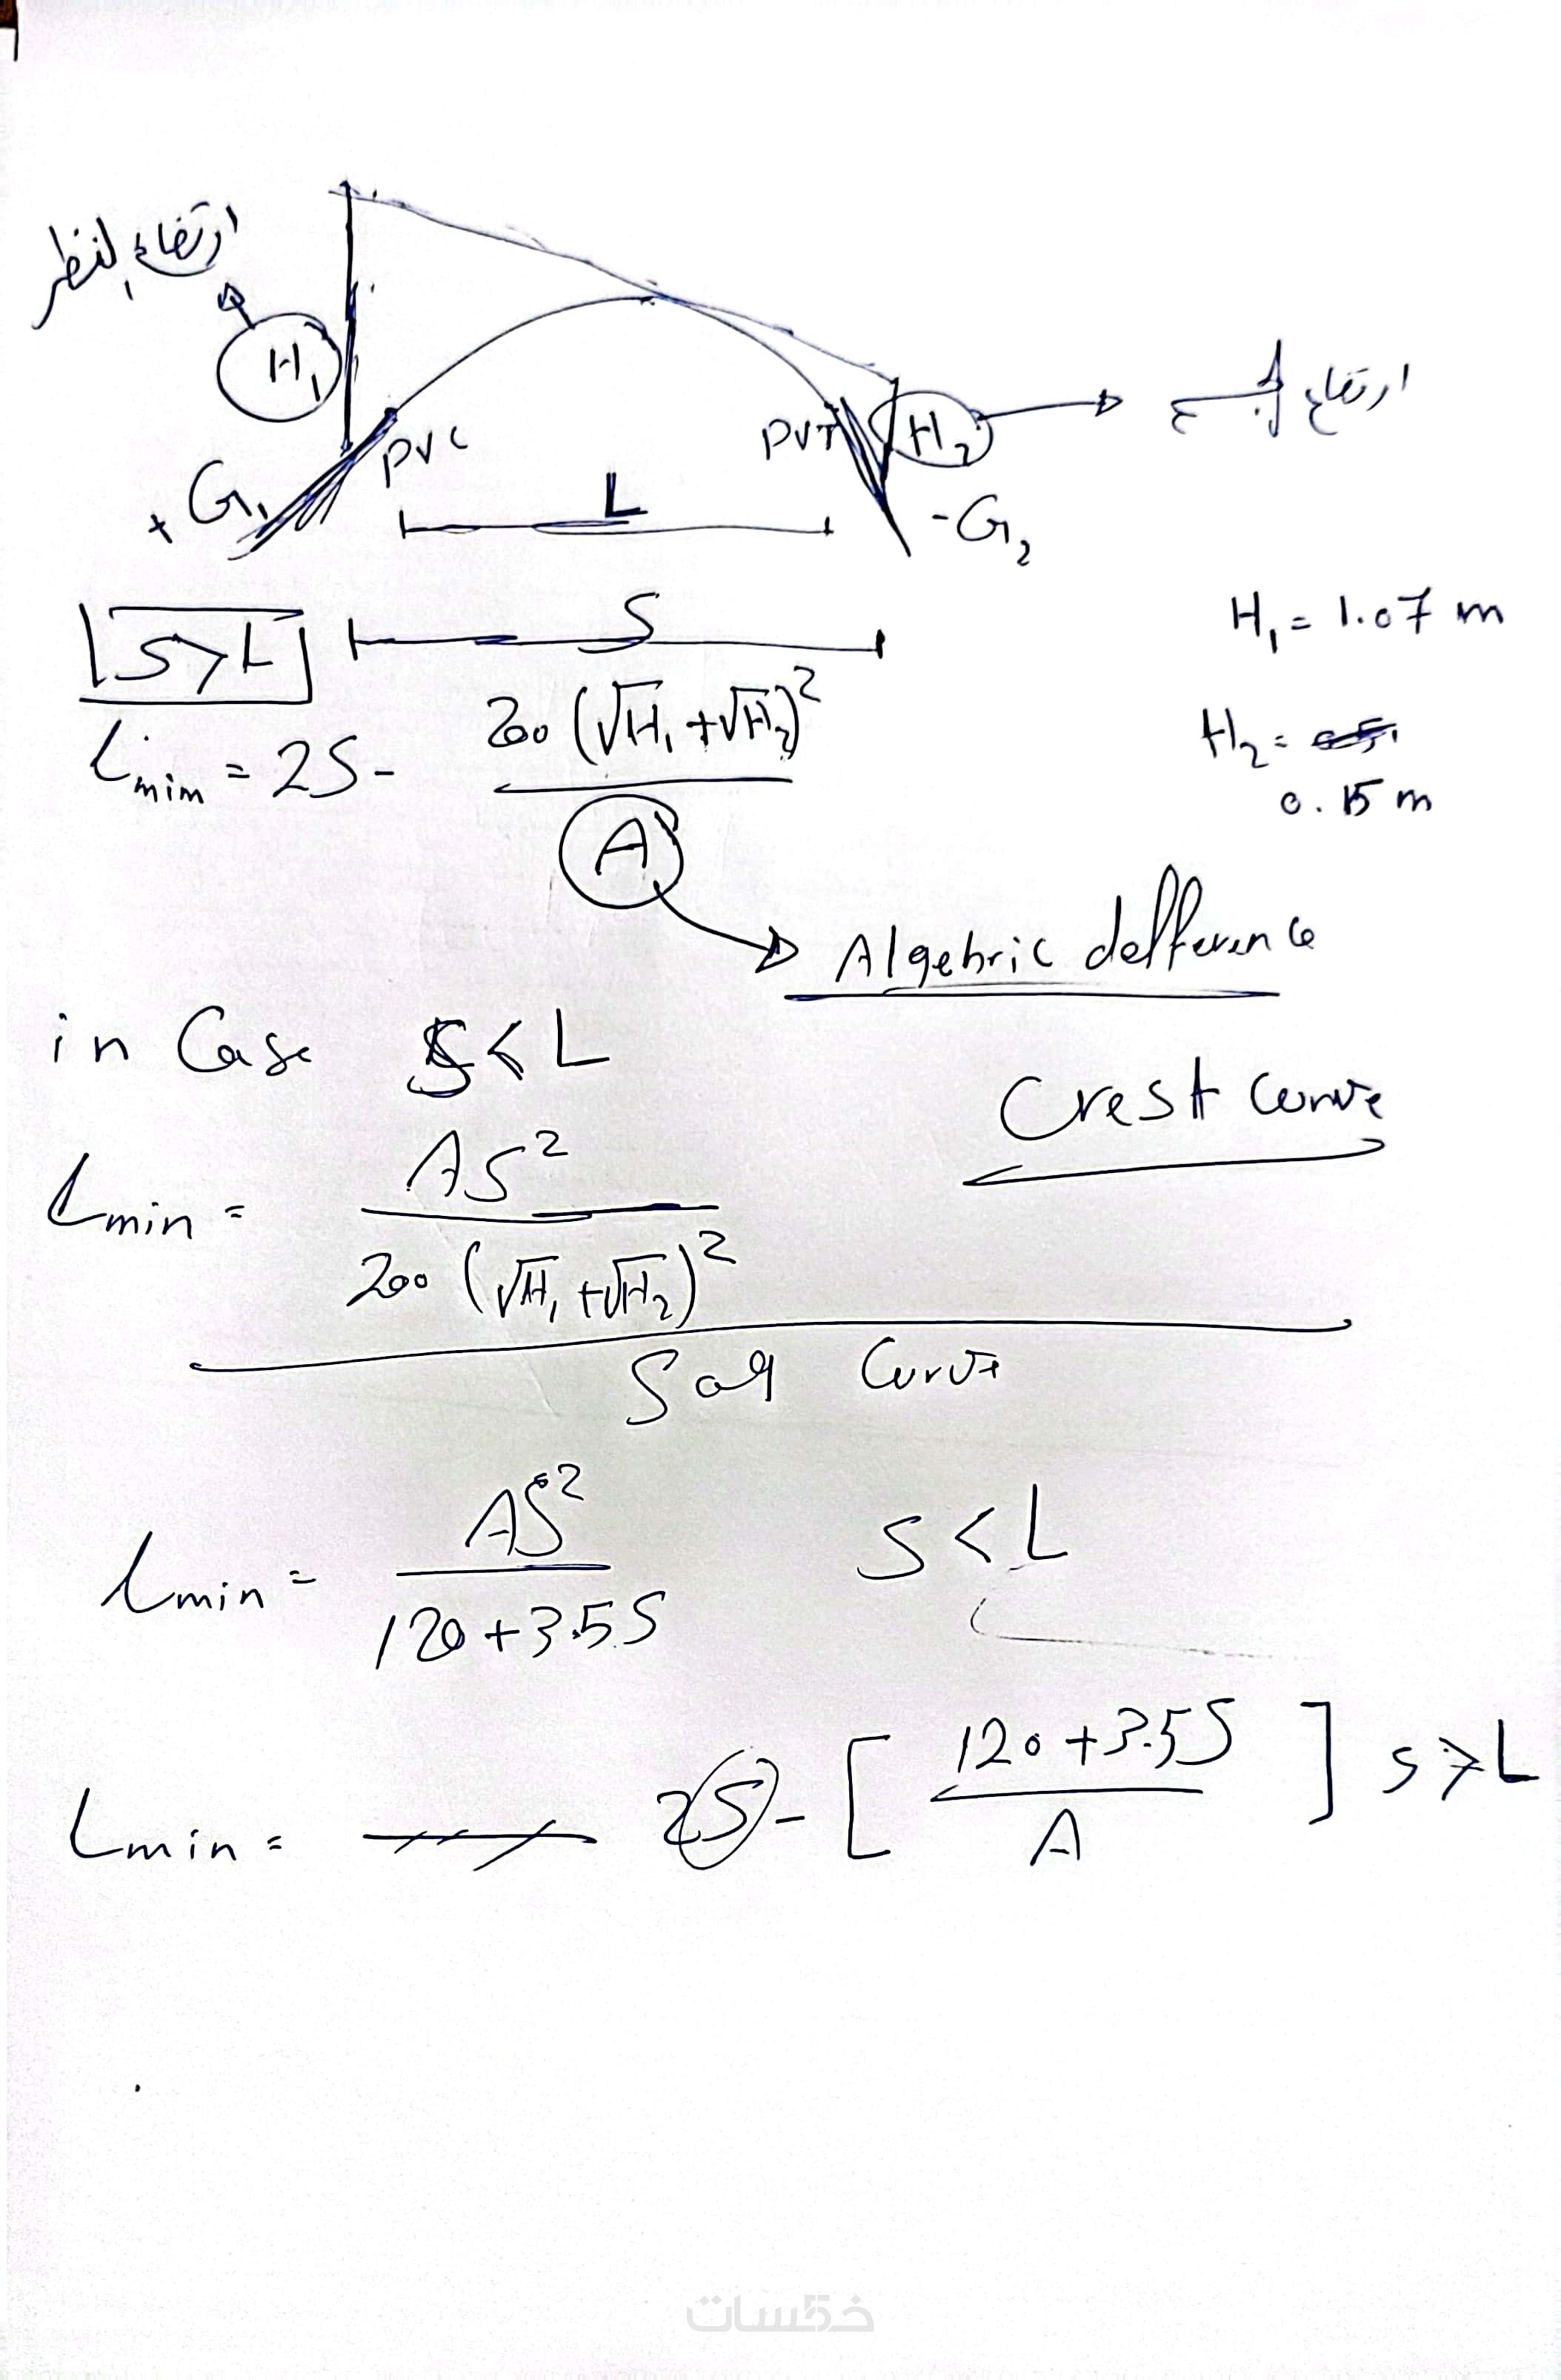 ارتفاع النظر
H₁
PVC
PVT
H₂
ارتفاع الجسم
+ G₁
L
- G₂
S>L
S
H₁ = 1.07 m
Lmin = 2S - 200 (√H₁ + √H₂)² / A
H₂ =
0.15 m
Algebric defference
in Case S < L
Crest Curve
Lmin = AS² / 200 (√H₁ + √H₂)²
Sag Curve
Lmin = AS² / 120 + 3.5S S < L
Lmin = 2S - [ 120 + 3.5S / A ] S > L
خمسات